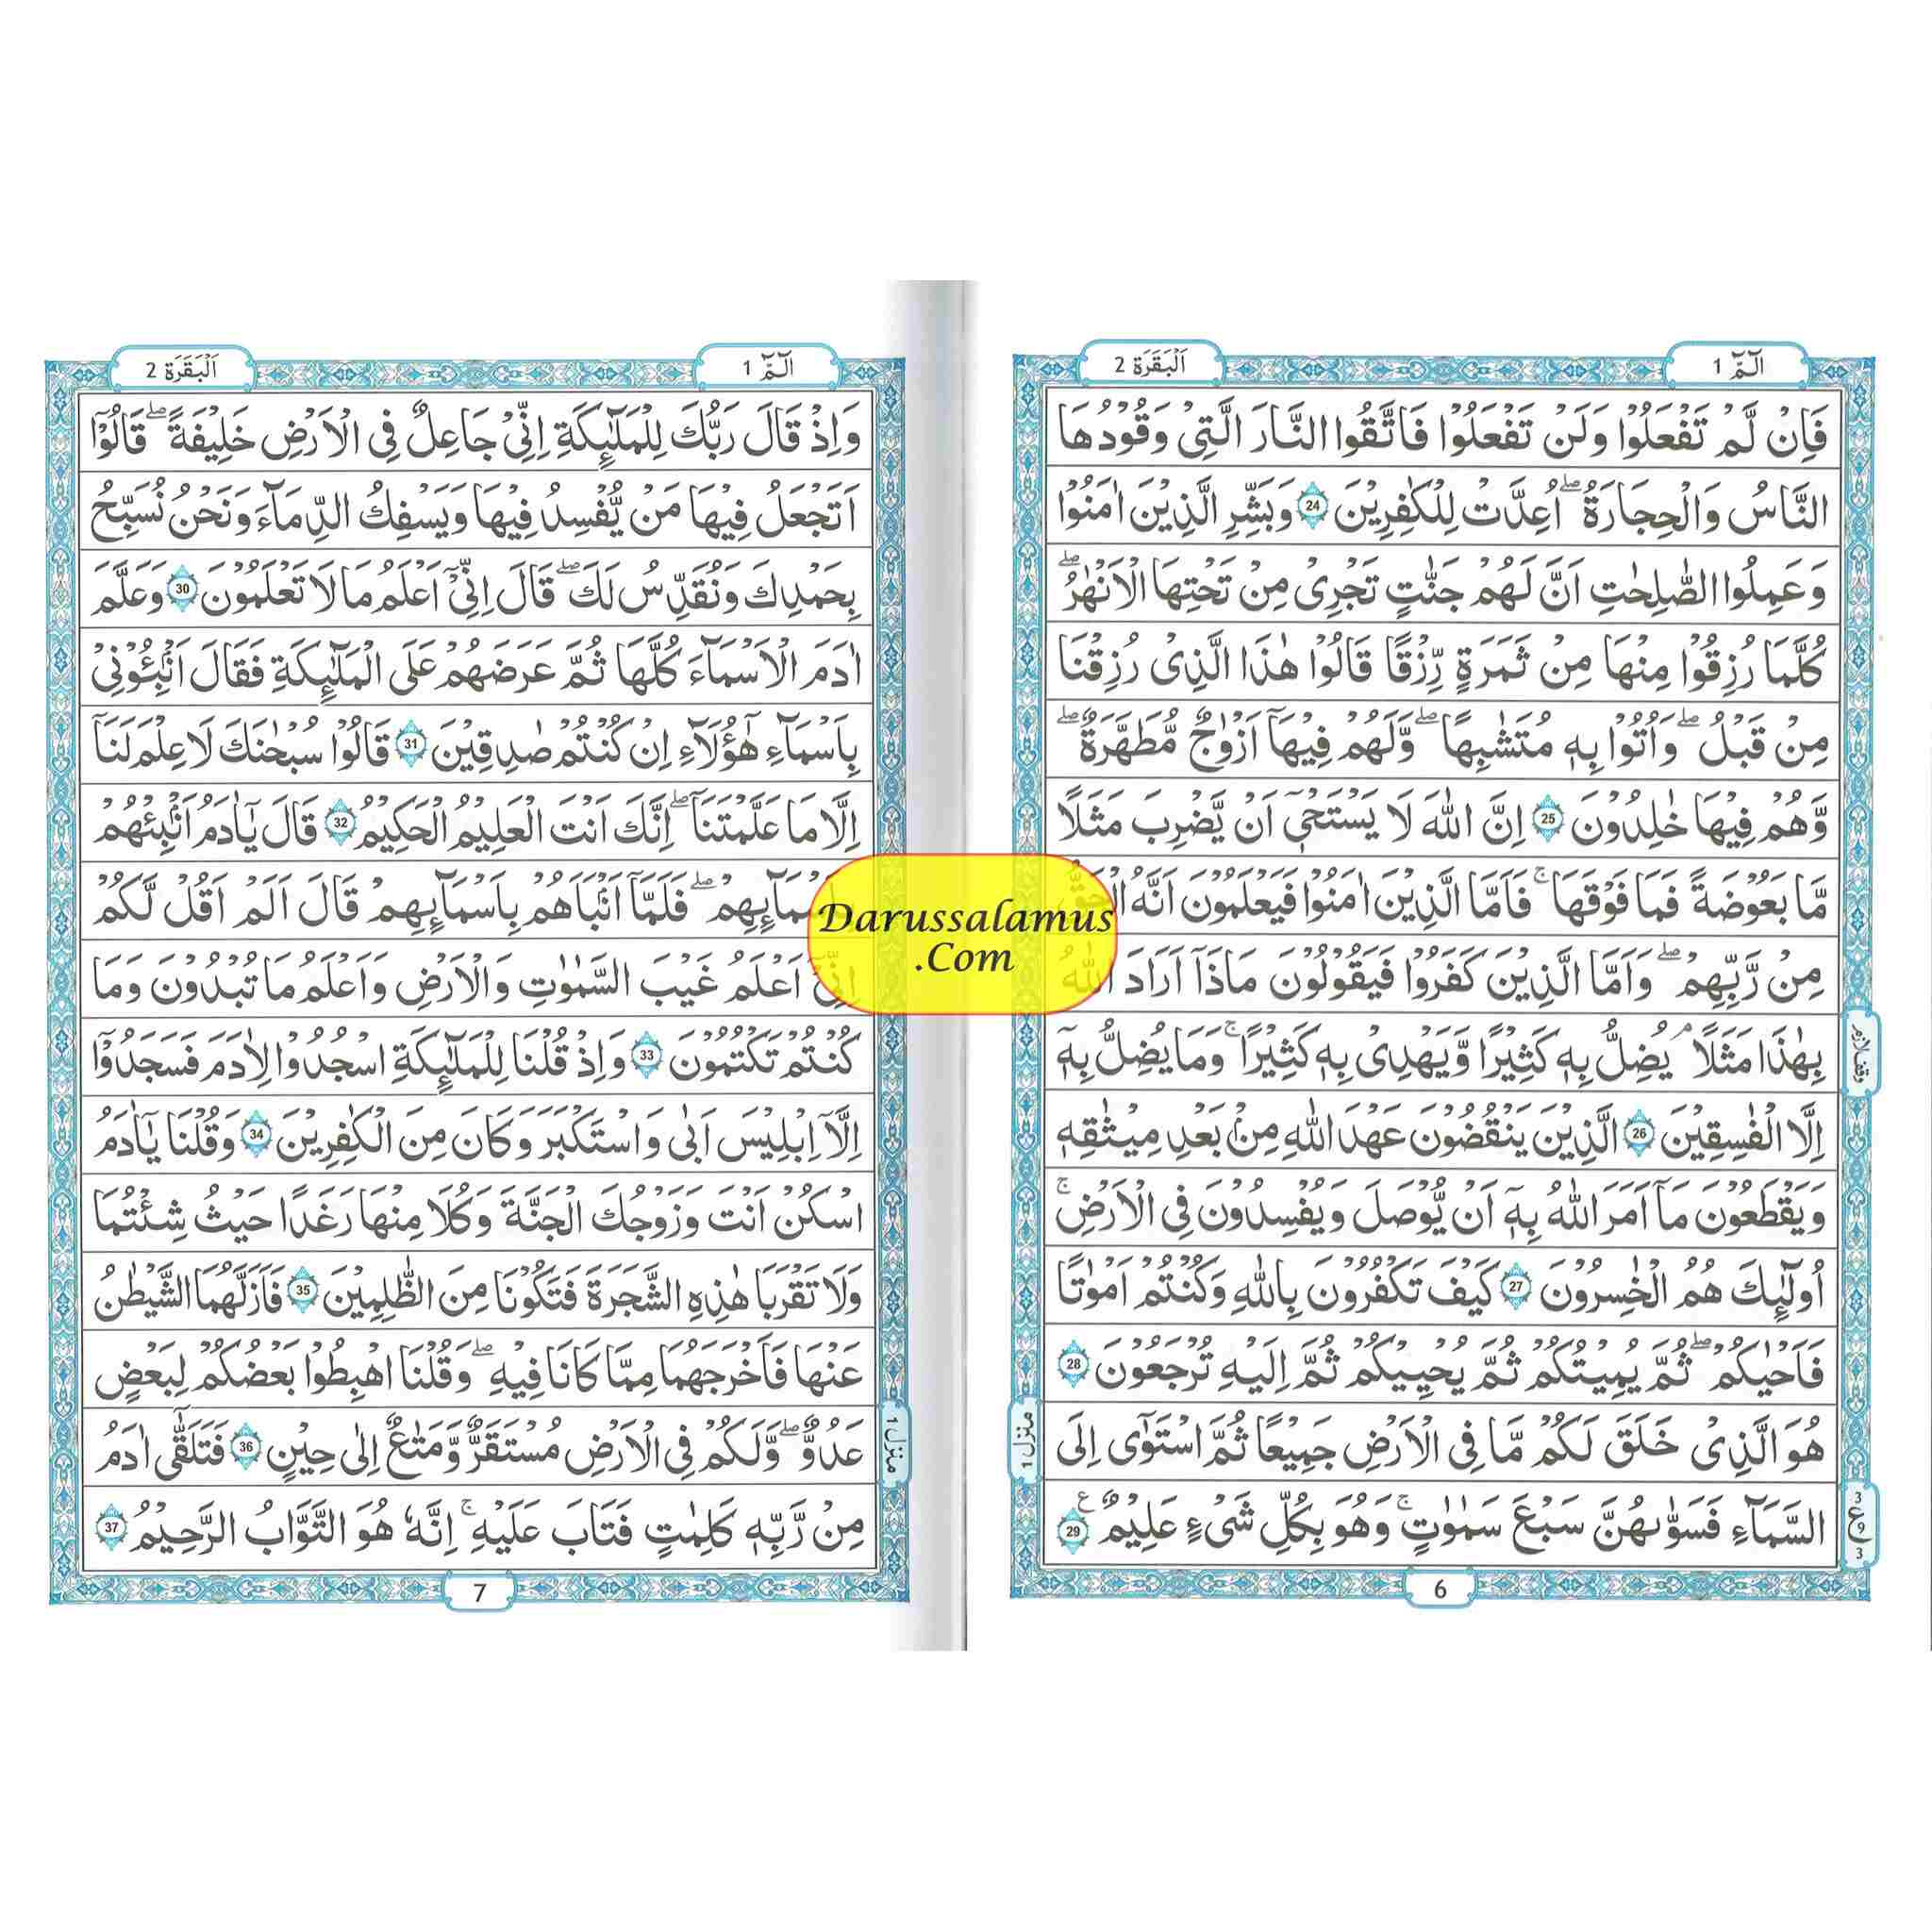 الٓمّٓ 1
اَلْبَقَرَة 2
فَاِنْ لَّمْ تَفْعَلُوْا وَلَنْ تَفْعَلُوْا فَاتَّقُوا النَّارَ الَّتِىْ وَقُوْدُهَا
النَّاسُ وَالْحِجَارَةُ ۖ اُعِدَّتْ لِلْكٰفِرِيْنَ 24 وَبَشِّرِ الَّذِيْنَ اٰمَنُوْا
وَعَمِلُوا الصّٰلِحٰتِ اَنَّ لَهُمْ جَنّٰتٍ تَجْرِىْ مِنْ تَحْتِهَا الْاَنْهٰرُ ۖ
كُلَّمَا رُزِقُوْا مِنْهَا مِنْ ثَمَرَةٍ رِّزْقًا قَالُوْا هٰذَا الَّذِىْ رُزِقْنَا
مِنْ قَبْلُ ۖ وَاُتُوْا بِهٖ مُتَشٰبِهًا ۖ وَّلَهُمْ فِيْهَآ اَزْوَاجٌ مُّطَهَّرَةٌ ۖ
وَّهُمْ فِيْهَا خٰلِدُوْنَ 25 اِنَّ اللّٰهَ لَا يَسْتَحْىٖٓ اَنْ يَّضْرِبَ مَثَلًا
مَّا بَعُوْضَةً فَمَا فَوْقَهَا ۚ فَاَمَّا الَّذِيْنَ اٰمَنُوْا فَيَعْلَمُوْنَ اَنَّهُ الْحَقُّ
مِنْ رَّبِّهِمْ ۖ وَاَمَّا الَّذِيْنَ كَفَرُوْا فَيَقُوْلُوْنَ مَاذَآ اَرَادَ اللّٰهُ
بِهٰذَا مَثَلًا ۘ يُضِلُّ بِهٖ كَثِيْرًا وَّيَهْدِىْ بِهٖ كَثِيْرًا ۚ وَمَا يُضِلُّ بِهٖٓ
اِلَّا الْفٰسِقِيْنَ 26 الَّذِيْنَ يَنْقُضُوْنَ عَهْدَ اللّٰهِ مِنْۢ بَعْدِ مِيْثَاقِهٖ
وَيَقْطَعُوْنَ مَآ اَمَرَ اللّٰهُ بِهٖٓ اَنْ يُّوْصَلَ وَيُفْسِدُوْنَ فِى الْاَرْضِ ۚ
اُولٰٓئِكَ هُمُ الْخٰسِرُوْنَ 27 كَيْفَ تَكْفُرُوْنَ بِاللّٰهِ وَكُنْتُمْ اَمْوَاتًا
فَاَحْيَاكُمْ ۖ ثُمَّ يُمِيْتُكُمْ ثُمَّ يُحْيِيْكُمْ ثُمَّ اِلَيْهِ تُرْجَعُوْنَ 28
هُوَ الَّذِىْ خَلَقَ لَكُمْ مَّا فِى الْاَرْضِ جَمِيْعًا ثُمَّ اسْتَوٰٓى اِلَى
السَّمَآءِ فَسَوّٰىهُنَّ سَبْعَ سَمٰوٰتٍ ۚ وَهُوَ بِكُلِّ شَىْءٍ عَلِيْمٌ 29
وقف لازم
منزل 1
3
ع
9
3
6
الٓمّٓ 1
اَلْبَقَرَة 2
وَاِذْ قَالَ رَبُّكَ لِلْمَلٰٓئِكَةِ اِنِّىْ جَاعِلٌ فِى الْاَرْضِ خَلِيْفَةً ۖ قَالُوْٓا
اَتَجْعَلُ فِيْهَا مَنْ يُّفْسِدُ فِيْهَا وَيَسْفِكُ الدِّمَآءَ وَنَحْنُ نُسَبِّحُ
بِحَمْدِكَ وَنُقَدِّسُ لَكَ ۖ قَالَ اِنِّىْٓ اَعْلَمُ مَا لَا تَعْلَمُوْنَ 30 وَعَلَّمَ
اٰدَمَ الْاَسْمَآءَ كُلَّهَا ثُمَّ عَرَضَهُمْ عَلَى الْمَلٰٓئِكَةِ فَقَالَ اَنْۢبِئُوْنِىْ
بِاَسْمَآءِ هٰٓؤُلَآءِ اِنْ كُنْتُمْ صٰدِقِيْنَ 31 قَالُوْا سُبْحٰنَكَ لَا عِلْمَ لَنَآ
اِلَّا مَا عَلَّمْتَنَا ۖ اِنَّكَ اَنْتَ الْعَلِيْمُ الْحَكِيْمُ 32 قَالَ يٰٓاٰدَمُ اَنْۢبِئْهُمْ
بِاَسْمَآئِهِمْ ۖ فَلَمَّآ اَنْۢبَاَهُمْ بِاَسْمَآئِهِمْ قَالَ اَلَمْ اَقُلْ لَّكُمْ
اِنِّىْٓ اَعْلَمُ غَيْبَ السَّمٰوٰتِ وَالْاَرْضِ وَاَعْلَمُ مَا تُبْدُوْنَ وَمَا
كُنْتُمْ تَكْتُمُوْنَ 33 وَاِذْ قُلْنَا لِلْمَلٰٓئِكَةِ اسْجُدُوْا لِاٰدَمَ فَسَجَدُوْٓا
اِلَّآ اِبْلِيْسَ اَبٰى وَاسْتَكْبَرَ وَكَانَ مِنَ الْكٰفِرِيْنَ 34 وَقُلْنَا يٰٓاٰدَمُ
اسْكُنْ اَنْتَ وَزَوْجُكَ الْجَنَّةَ وَكُلَا مِنْهَا رَغَدًا حَيْثُ شِئْتُمَا
وَلَا تَقْرَبَا هٰذِهِ الشَّجَرَةَ فَتَكُوْنَا مِنَ الظّٰلِمِيْنَ 35 فَاَزَلَّهُمَا الشَّيْطٰنُ
عَنْهَا فَاَخْرَجَهُمَا مِمَّا كَانَا فِيْهِ ۖ وَقُلْنَا اهْبِطُوْا بَعْضُكُمْ لِبَعْضٍ
عَدُوٌّ ۖ وَّلَكُمْ فِى الْاَرْضِ مُسْتَقَرٌّ وَّمَتَاعٌ اِلٰى حِيْنٍ 36 فَتَلَقّٰٓى اٰدَمُ
مِنْ رَّبِّهٖ كَلِمٰتٍ فَتَابَ عَلَيْهِ ۚ اِنَّهٗ هُوَ التَّوَّابُ الرَّحِيْمُ 37
منزل 1
7
Darussalamus
.Com